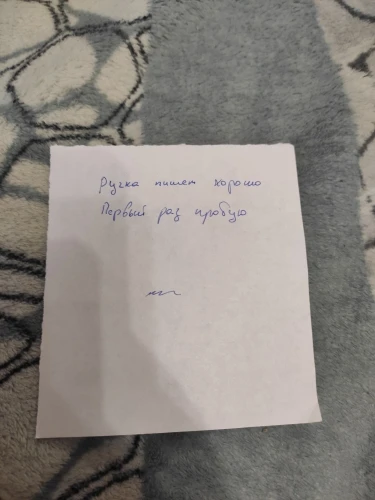 Ручка пишет хорошо
Первый раз пробую